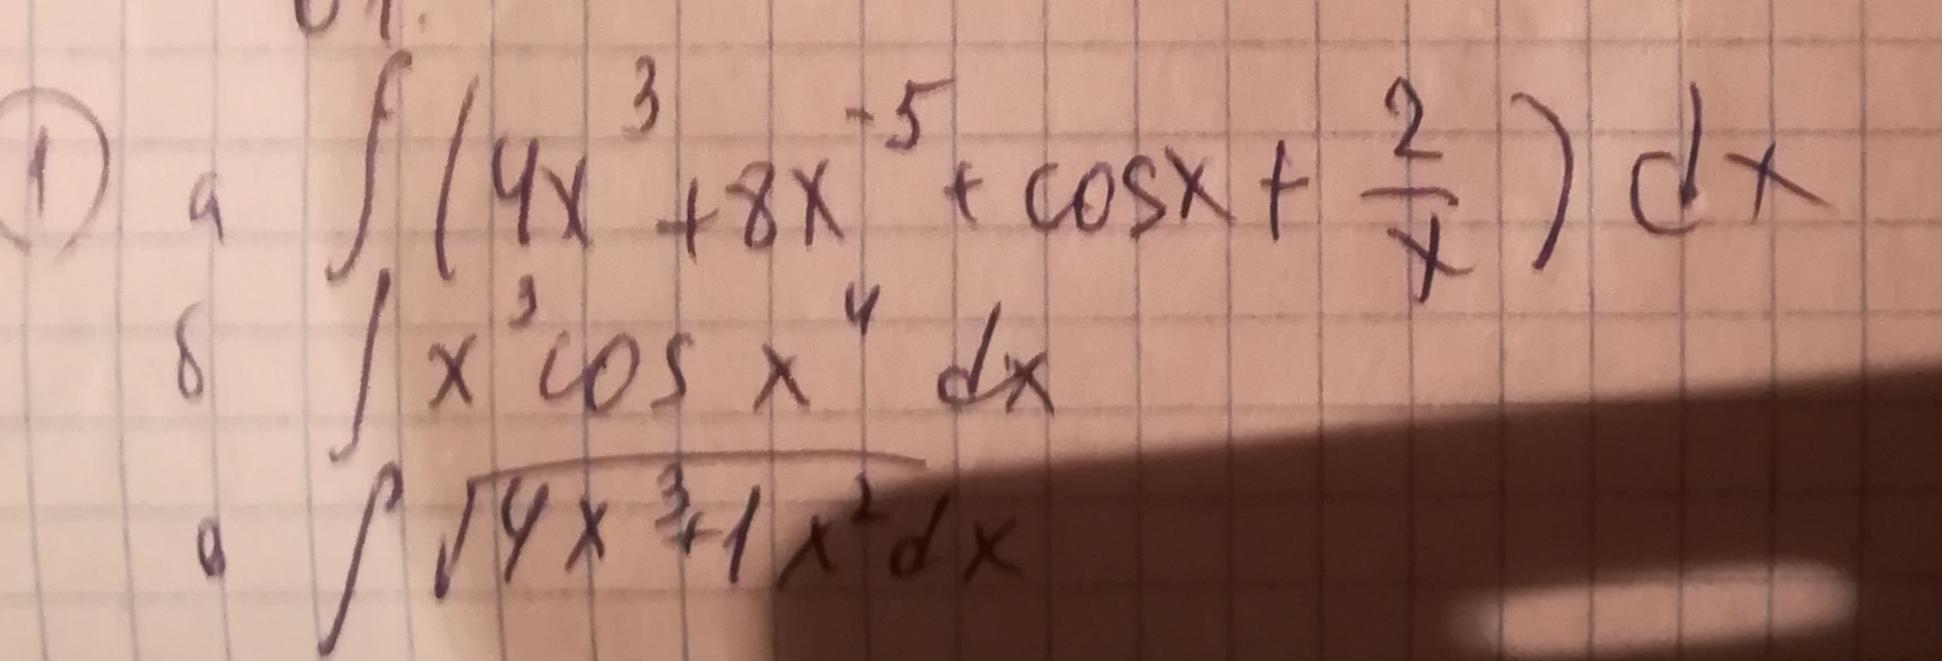 ① а ∫ (4x³ + 8x⁻⁵ + cosx + 2/x) dx
б ∫ x³ cos x⁴ dx
в ∫ √(4x³+1) x² dx